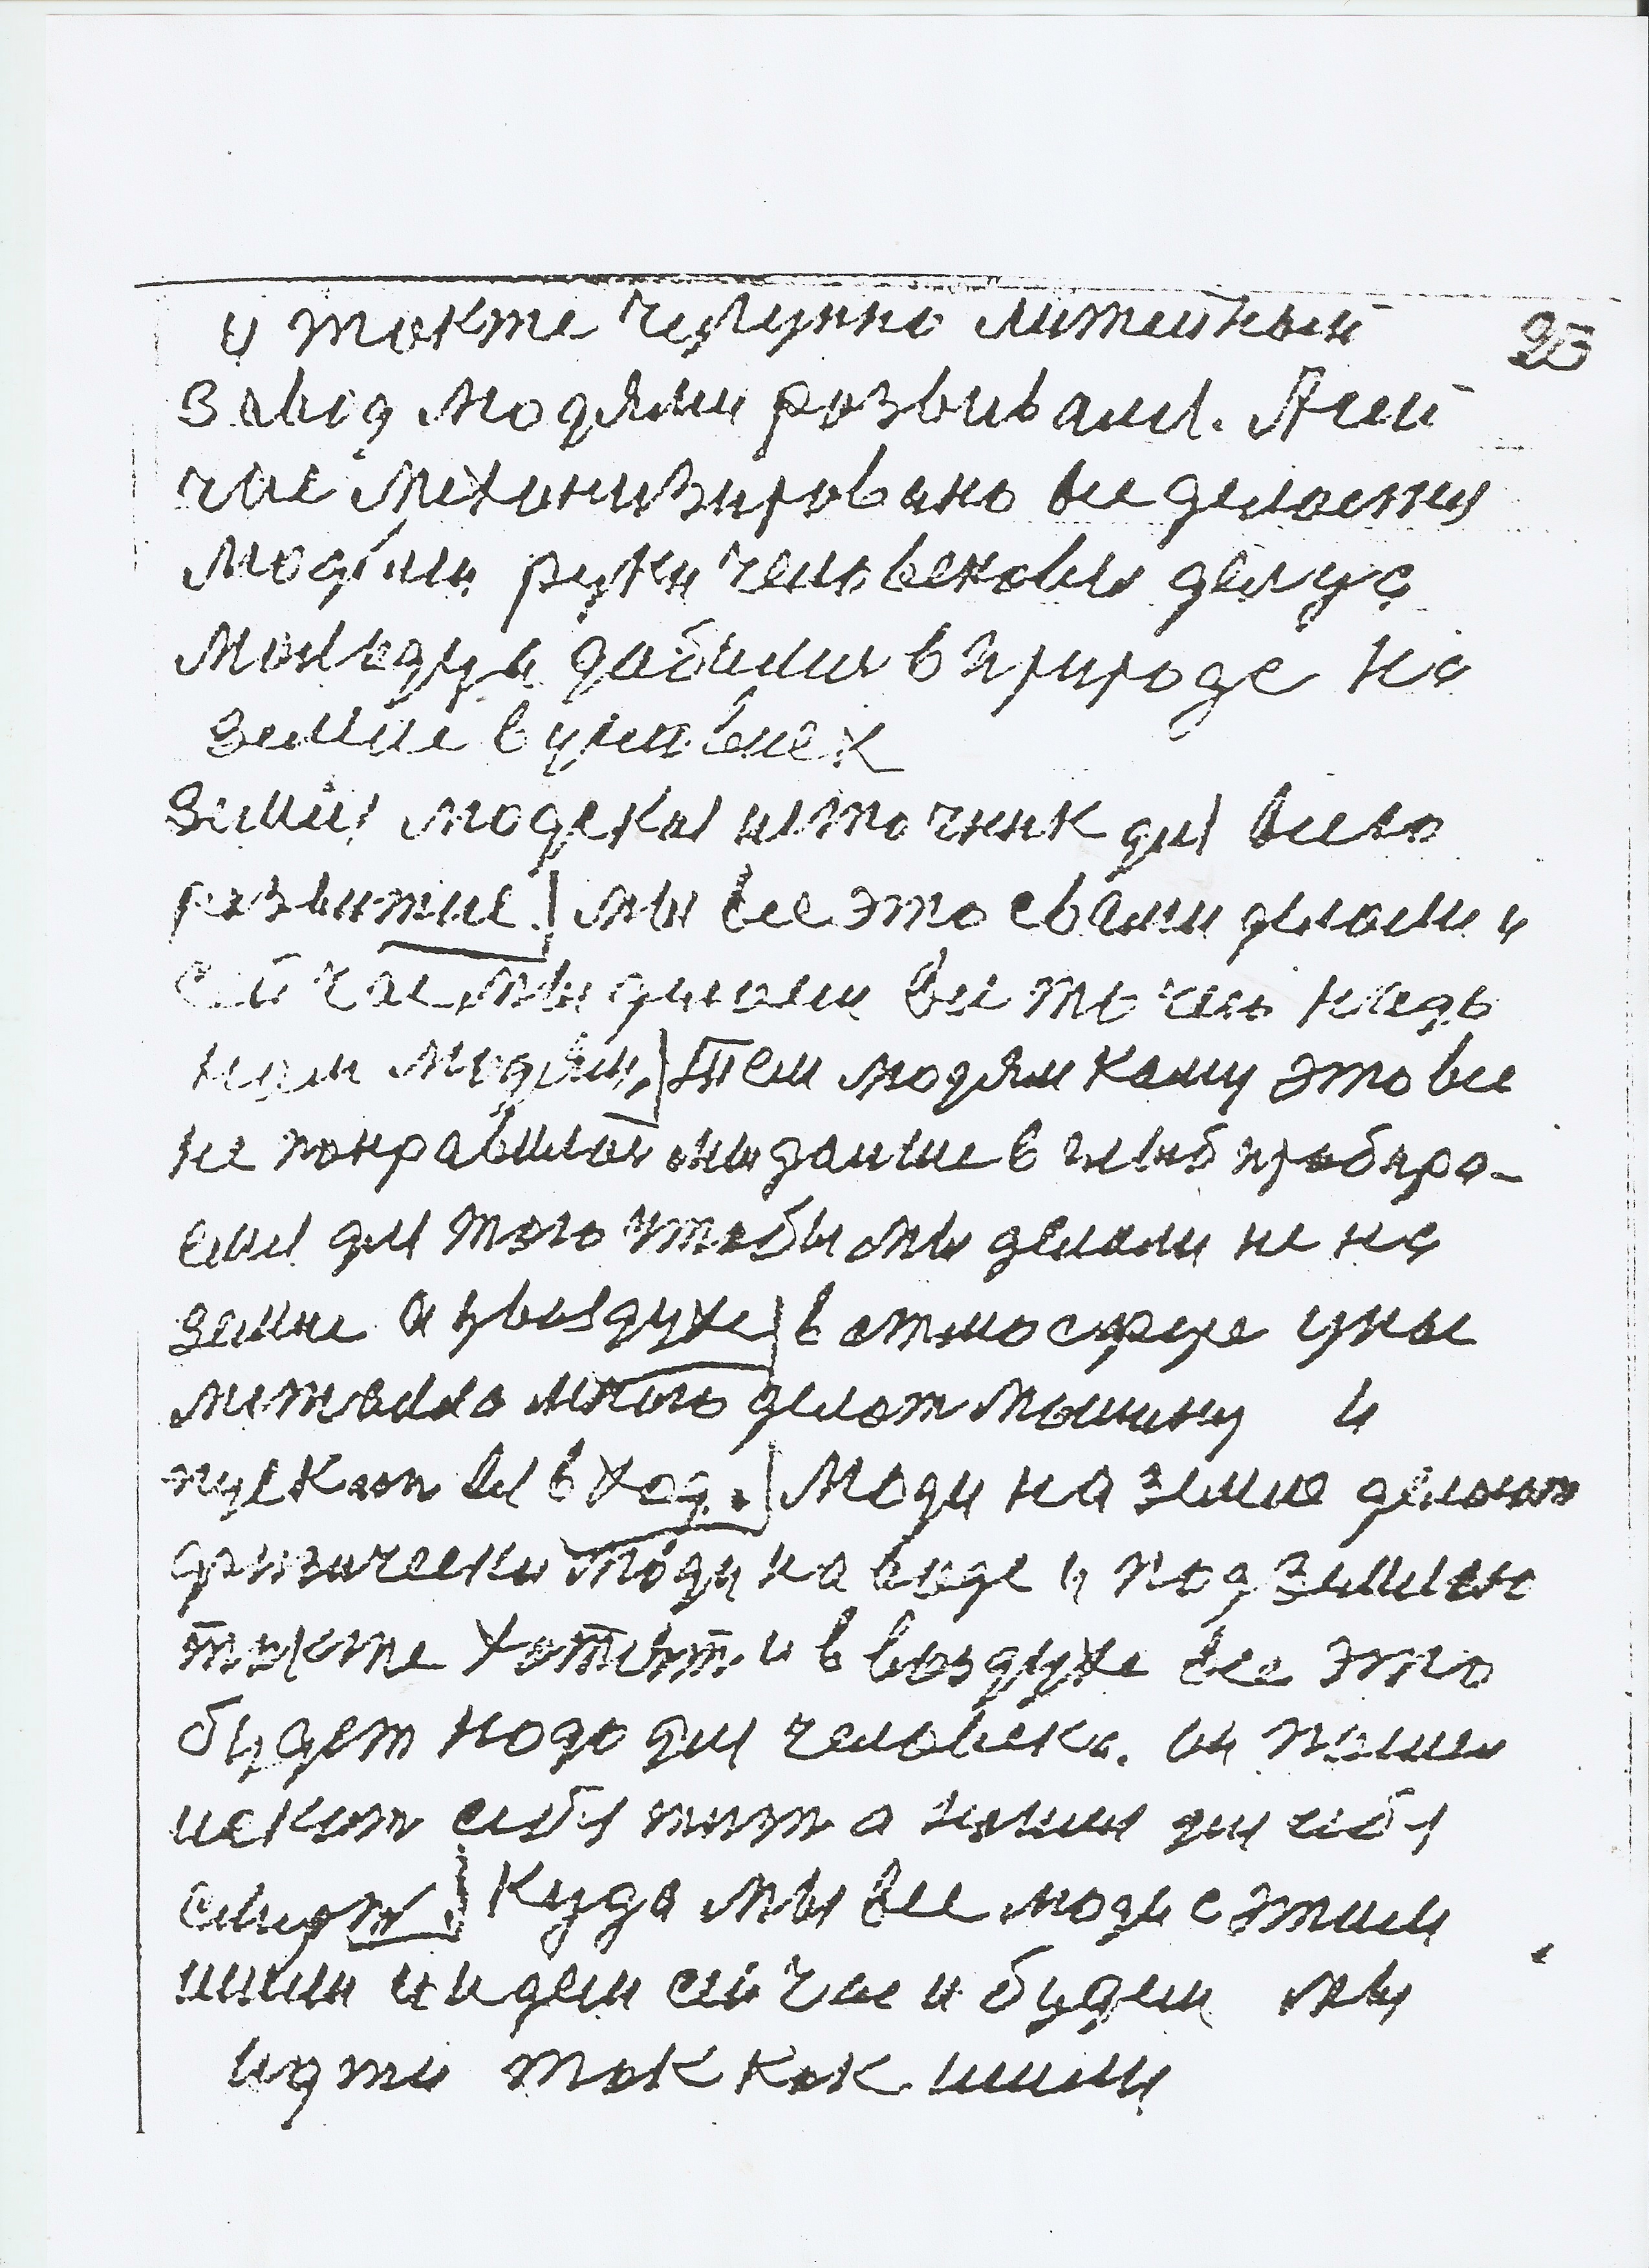 и также чугунно литейный
25
завод людями развивали. А сей
час механизировано все делается
людями руки человековы делус
мольедуь добыли в природе на
земле в условиех
Земля людская источник для всего
развитие. мы все это с вами делоем и
сей час мы делоем все то чего надо
нам людям, Тем людям каму это все
не понравилось они дальше в глыб пробира-
лись для того чтобы мы делали не на
земле а ввоздухе в атмосфере у нас
металла много делат машину и
пускают ее в ход. Люди на земле делают
физически люди на воде и под землею
также хотят и в воздухе все это
будет надо для человека. он пошел
искат себя там а нашел для себя
смерт. Куда мы все люди с этими
шли и идем сей час и будем мы
идти так как шли